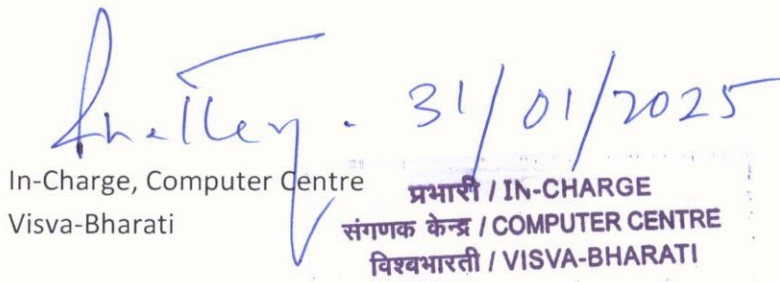 31/01/2025
In-Charge, Computer Centre
Visva-Bharati
प्रभारी / IN-CHARGE
संगणक केन्द्र / COMPUTER CENTRE
विश्वभारती / VISVA-BHARATI